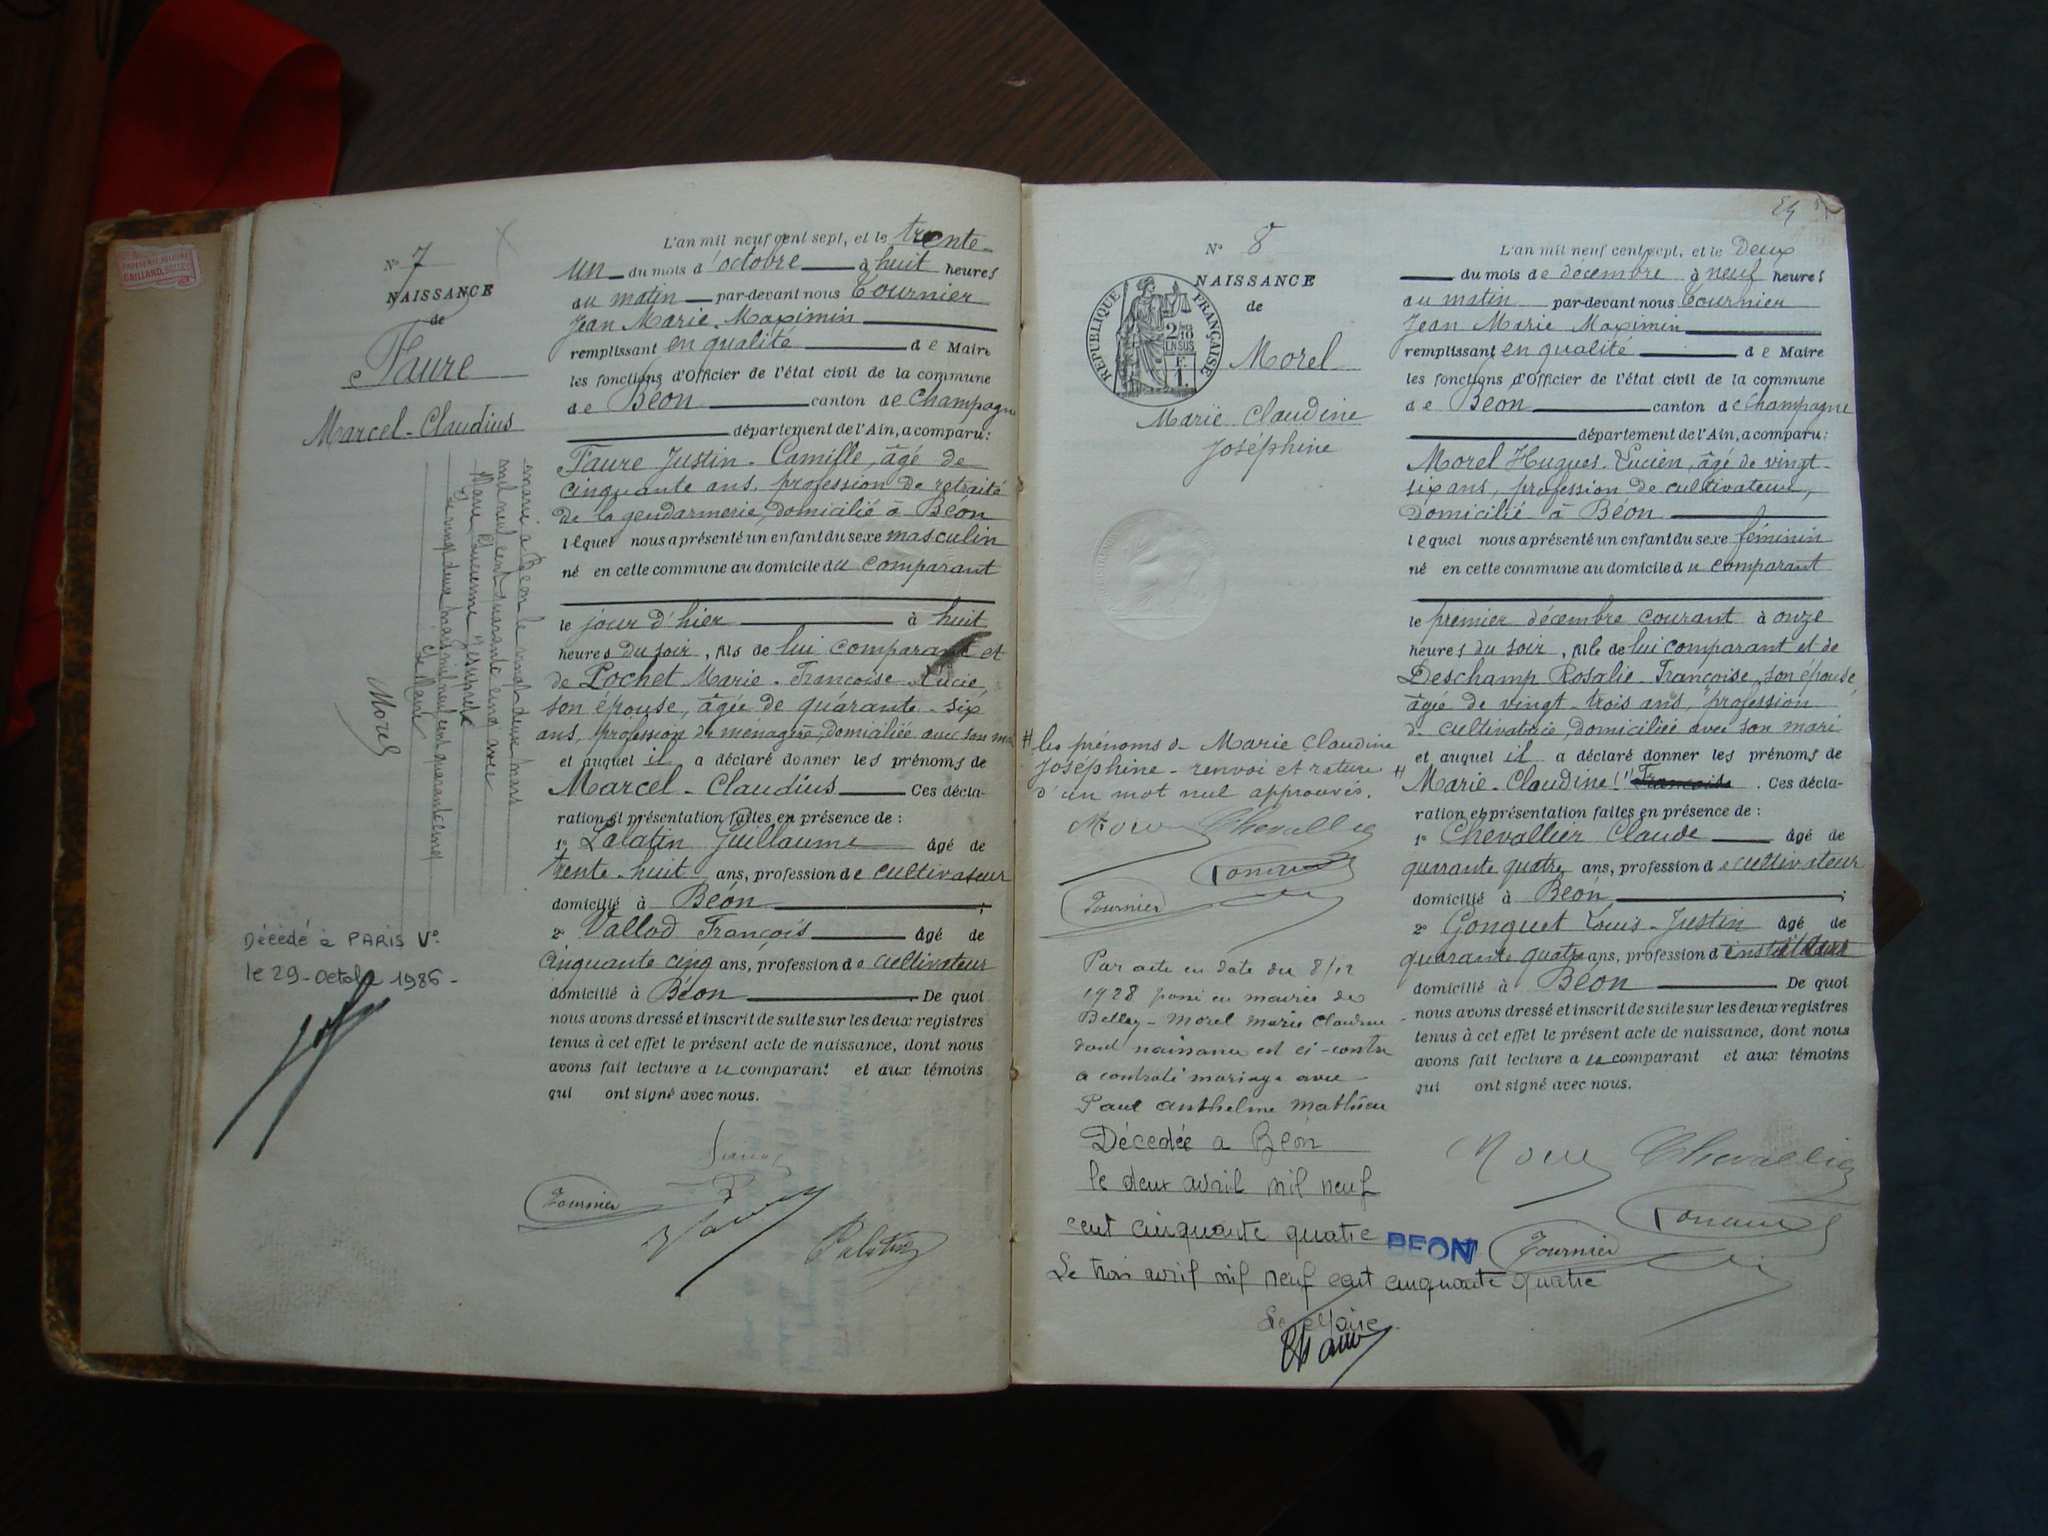 N° 7
NAISSANCE
de
Faure
Marcel-Claudius
marié à Béon le vingt deux mars
mil neuf cent quarante cinq avec
Marie
le vingt deux mars mil neuf cent quarante cinq
Le Maire
Morel
Décédé à PARIS V°
le 29 - Octobre 1986 -
L'an mil neuf cent sept, et le trente
un du mois d'octobre à huit heures
du matin par-devant nous Tournier
Jean Marie Maximin
remplissant en qualité de Maire
les fonctions d'Officier de l'état civil de la commune
de Béon canton de Champagne
département de l'Ain, a comparu:
Faure Justin-Camille, âgé de
cinquante ans, profession de retraité
de la gendarmerie, domicilié à Béon
lequel nous a présenté un enfant du sexe masculin
né en cette commune au domicile du comparant
le jour d'hier à huit
heures du soir, fils de lui comparant et
de Pochet Marie-Françoise Lucie,
son épouse, âgée de quarante-six
ans, profession de ménagère, domiciliée avec son mari
et auquel il a déclaré donner les prénoms de
Marcel-Claudius Ces décla-
ration et présentation faites en présence de :
1° Palatin Guillaume âgé de
trente-huit ans, profession de cultivateur
domicilié à Béon ;
2° Vallod François âgé de
cinquante cinq ans, profession de cultivateur
domicilié à Béon De quoi
nous avons dressé et inscrit de suite sur les deux registres
tenus à cet effet le présent acte de naissance, dont nous
avons fait lecture au comparant et aux témoins
qui ont signé avec nous.
Faure
Tournier
Palatin
N° 8
NAISSANCE
de
RÉPUBLIQUE FRANÇAISE
2/10 EN SUS
F. 1.
Morel
Marie Claudine
Joséphine
# les prénoms de Marie Claudine
Joséphine - renvoi et rature
d'un mot nul approuvés.
Morel Chevallier
Tournier
Par acte en date du 8/12
1928 passé en mairie de
Belley - Morel Marie Claudine
dont naissance est ci-contre
a contracté mariage avec
Paul Anthelme Mathieu
Décédée à Béon
le deux avril mil neuf
cent cinquante quatre
BEON
Le trois avril mil neuf cent cinquante quatre
Le Maire
L'an mil neuf cent sept, et le Deux
du mois de décembre à neuf heures
du matin par-devant nous Tournier
Jean Marie Maximin
remplissant en qualité de Maire
les fonctions d'Officier de l'état civil de la commune
de Béon canton de Champagne
département de l'Ain, a comparu:
Morel Hugues-Lucien, âgé de vingt-
six ans, profession de cultivateur,
domicilié à Béon
lequel nous a présenté un enfant du sexe féminin
né en cette commune au domicile du comparant
le premier décembre courant à onze
heures du soir, fille de lui comparant et de
Deschamp Rosalie-Françoise, son épouse,
âgée de vingt-trois ans, profession
de cultivatrice, domiciliée avec son mari
et auquel il a déclaré donner les prénoms de
# Marie-Claudine Françoise. Ces décla-
ration et présentation faites en présence de :
1° Chevallier Claude âgé de
quarante quatre ans, profession de cultivateur
domicilié à Béon ;
2° Gonguet Louis-Justin âgé de
quarante quatre ans, profession d
domicilié à Béon De quoi
nous avons dressé et inscrit de suite sur les deux registres
tenus à cet effet le présent acte de naissance, dont nous
avons fait lecture au comparant et aux témoins
qui ont signé avec nous.
Morel Chevallier
Tournier